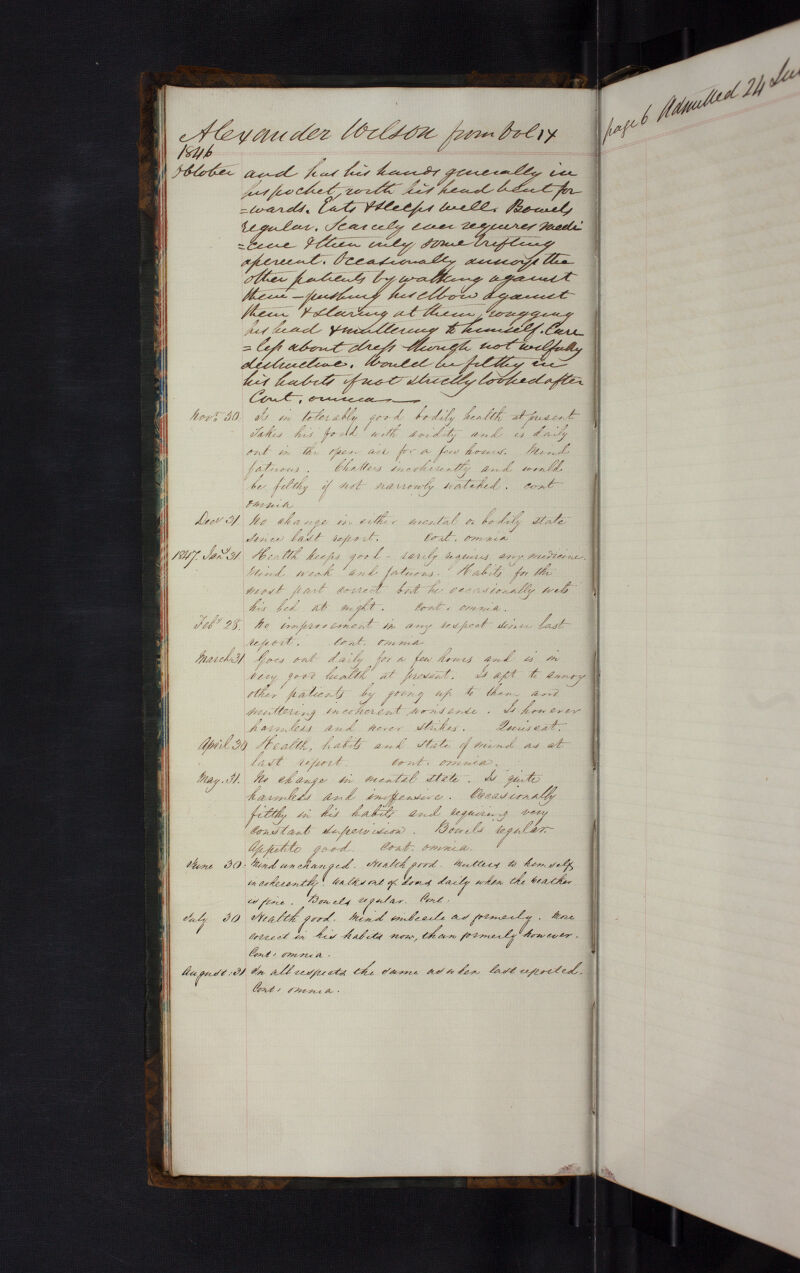 Alexander Wilson from Vol IX
page 6 Admitted 24
1846
October and has his hands generally in
his pocket, with his head bent for
=wards. Eats & sleeps well. Bowels
regular. Scarcely ever requires medi
=cine & then only some trifling
aperient. Occasionally annoys the
other patients by walking against
them – pushing his elbow against
them & staring at them, wagging
his head & muttering to himself. Care
=less about dress though not wilfully
destructive. Would be filthy in
his habits if not strictly looked after
Cont. omnia
Novr 30 Is in tolerably good bodily health at present
Takes his food with avidity and is daily
out in the open air for a few hours. Mind
fatuous. Chatters incoherently and would
be filthy if not narrowly watched. cont
omnia
Decr 31 No change in either mental or bodily state
since last report. Cont. omnia
1847. Jany 31 Health keeps good – rarely requires any medicine.
Mind weak and fatuous. Habits for the
most part correct but he occasionally wets
his bed at night. Cont. omnia.
Feby 28. No improvement in any respect since last
report. Cont. omnia
March 31 Goes out daily for a few hours and is in
very good health at present. Is apt to annoy
other patients by going up to them and
muttering incoherent nonsense. Is however
harmless and never strikes.
April 30 Health, habits and state of mind as at
last report. Cont. omnia.
May. 31. No change in mental state. Is quite
harmless and inoffensive. Occasionally
filthy in his habits and requiring very
constant supervision. Bowels regular.
Appetite good. Cont. omnia.
June 30. Mind unchanged. Health good. Mutters to himself
incoherently. Walks out of doors daily when the weather
is fine. Bowels regular. Cont.
July 30 Health good. Mind imbecile as formerly. More
correct in his habits now, than formerly however.
Cont: omnia.
August: 31 In all respects the same as when last reported.
Cont: omnia.